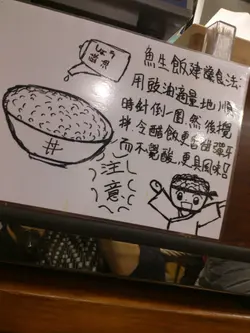 魚生飯建議食法:
用豉油適量地順
時針倒一圈,然後攪
拌.令醋飯更香甜彈牙
而不覺酸,更具風味!!
しょうゆ
豉油
注意